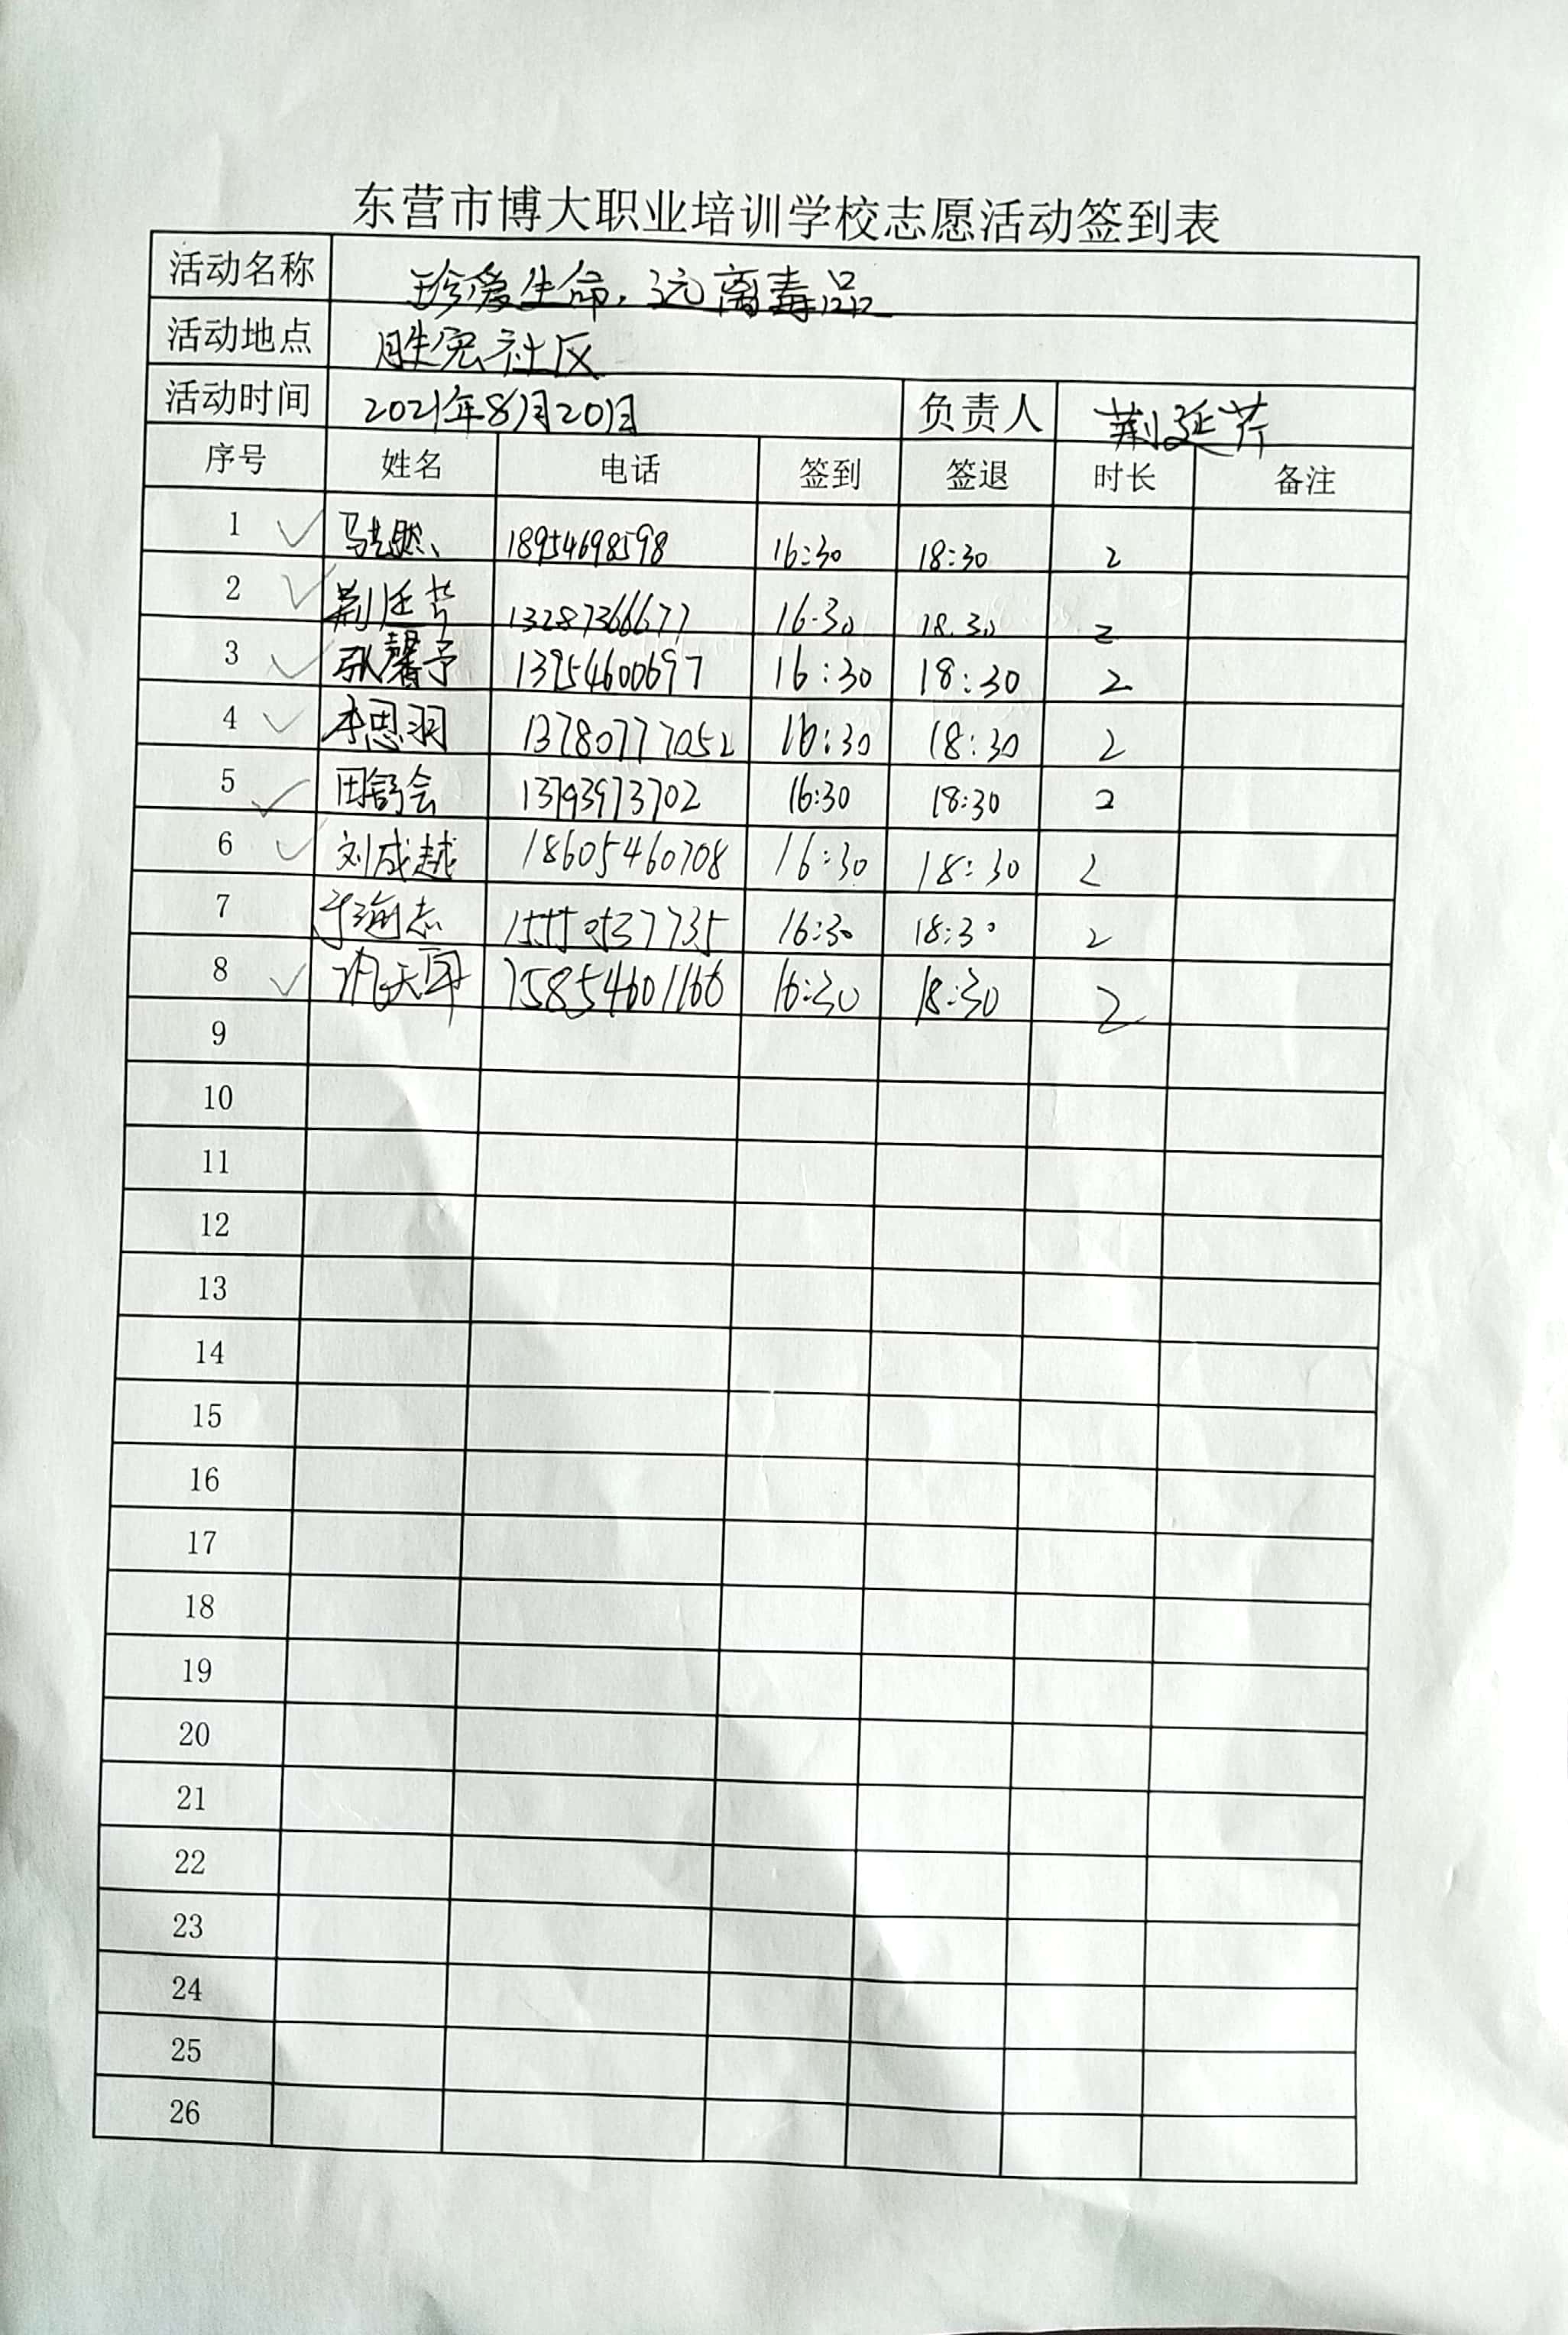 东营市博大职业培训学校志愿活动签到表
活动名称 珍爱生命，远离毒品
活动地点 胜宏社区
活动时间 2021年8月20日 负责人 荆延芹
序号 姓名 电话 签到 签退 时长 备注
1 18954698598 16:30 18:30 2
2 荆延芹 13287366677 16:30 18:30 2
3 张馨予 13954600697 16:30 18:30 2
4 李思羽 13780777052 16:30 18:30 2
5 田舒会 13793973702 16:30 18:30 2
6 刘成越 18605460708 16:30 18:30 2
7 于海志 15550537735 16:30 18:30 2
8 15854601166 16:30 18:30 2
9
10
11
12
13
14
15
16
17
18
19
20
21
22
23
24
25
26